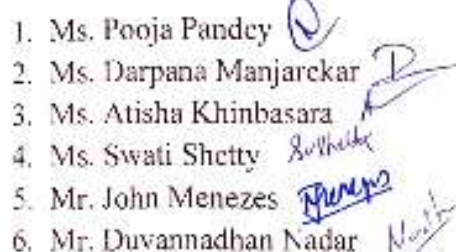 1. Ms. Pooja Pandey
2. Ms. Darpana Manjarekar
3. Ms. Atisha Khinbasara
4. Ms. Swati Shetty
5. Mr. John Menezes
6. Mr. Duvannadhan Nadar